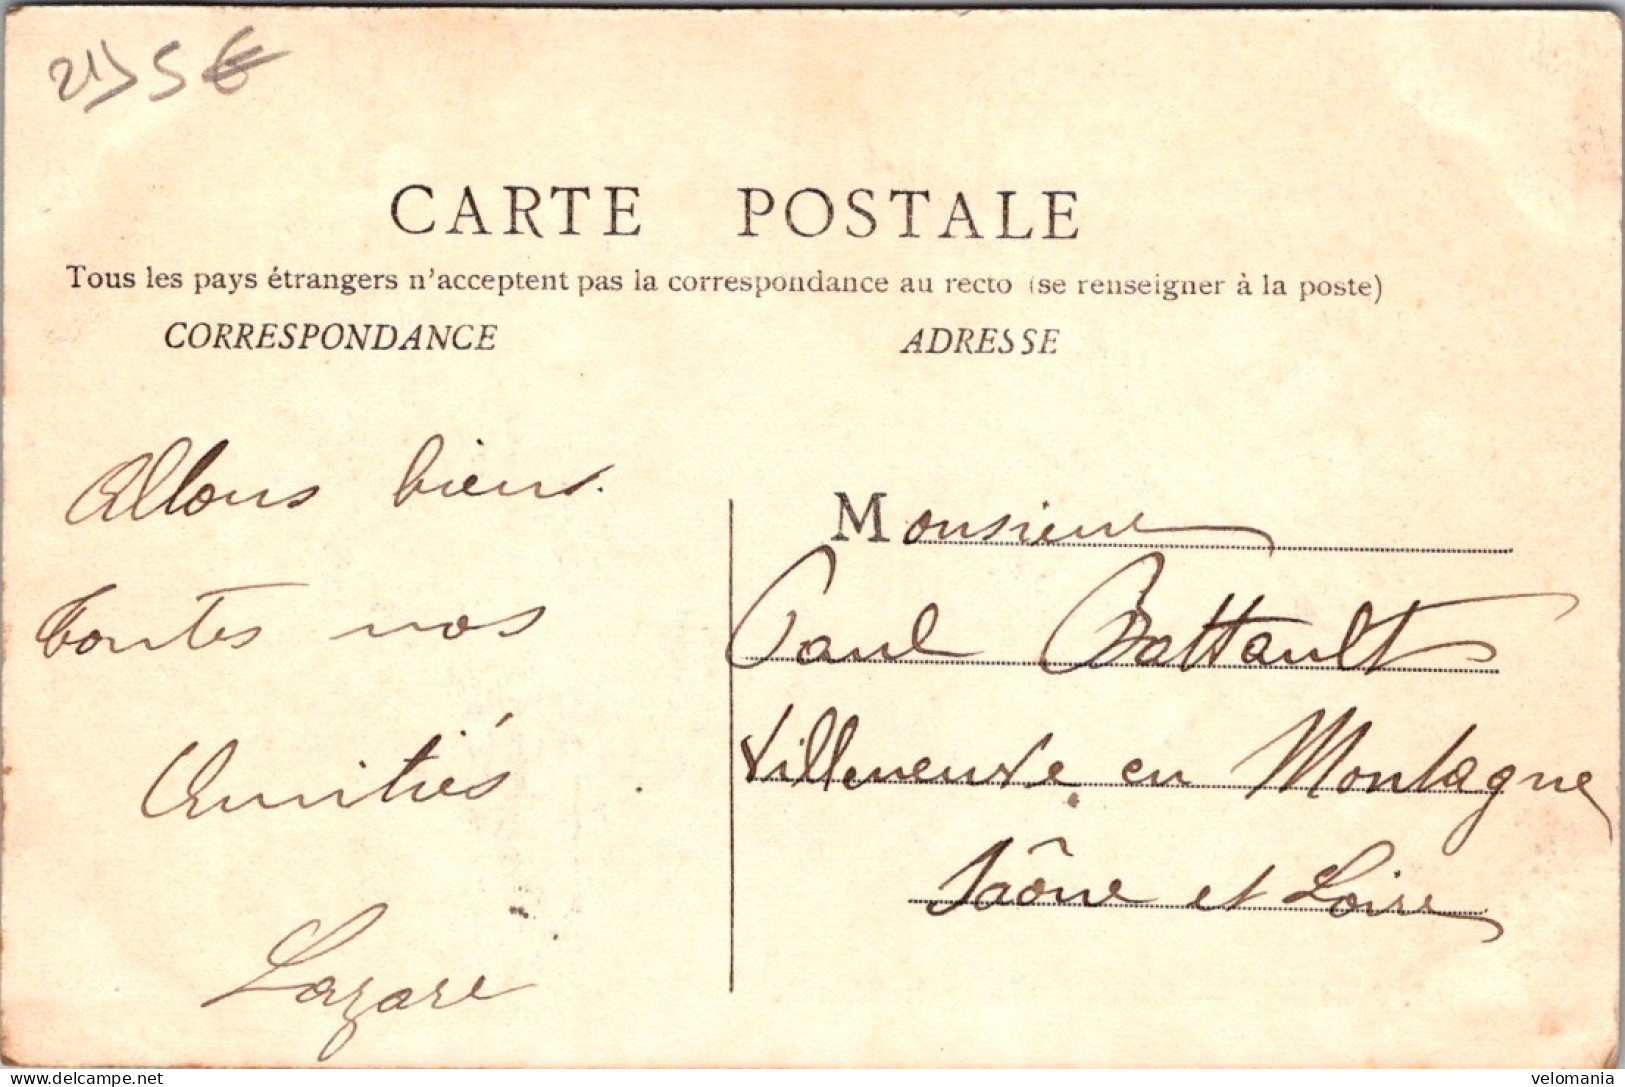 21) 5€
CARTE POSTALE
Tous les pays étrangers n'acceptent pas la correspondance au recto (se renseigner à la poste)
CORRESPONDANCE
ADRESSE
Allons bien.
toutes nos
Amitiés
Lazare
Monsieur
Paul Battault
Villeneuve en Montagne
Saône et Loire
www.delcampe.net
velomania